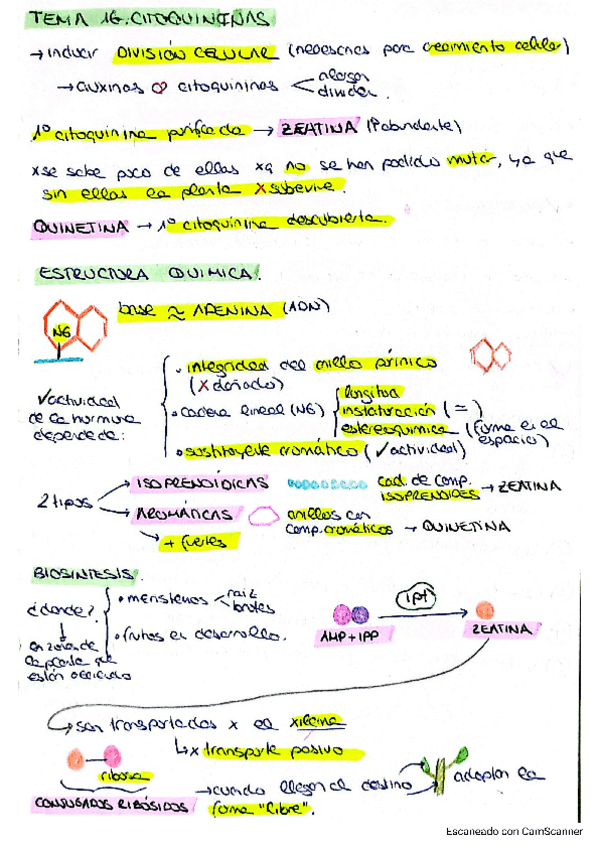 TEMA 16. CITOQUININAS
→ inducir DIVISIÓN CELULAR (necesarias para crecimiento celular)
→ auxinas citoquininas < alargar
dividir.
1º citoquinina purificada → ZEATINA (+abundante)
x se sabe poco de ellas xq no se han podido mutar, ya que
sin ellas la planta x subevive.
QUINETINA → 1º citoquinina descubierta.
ESTRUCTURA QUIMICA.
base ≈ ADENINA (ADN)
N6
✓actividad
de la hormona
depende de:
• integridad del anillo púrinico
(X dañado)
• cadena lineal (N6)
longitud
instaturación (=)
estereoquímica (forma en el
espacio)
• sustituyente aromático (✓actividad)
2 tipos
ISOPRENOÍDICAS
cad. de comp.
ISOPRENOIDES → ZEATINA
AROMÁTICAS
anillos con
comp. aromáticos → QUINETINA
→ + fuertes
BIOSINTESIS.
¿donde?
• meristemos < raíz
brotes
• frutos en desarrollo.
en zonas de
la planta que
están
AMP + IPP
ipt
ZEATINA
→ son transportadas x el xilema
↳ x transporte pasivo
ribosa
CONJUGADOS RIBÓSIDOS
→ cuando llegan al destino
adoptan la
forma "libre".
Escaneado con CamScanner